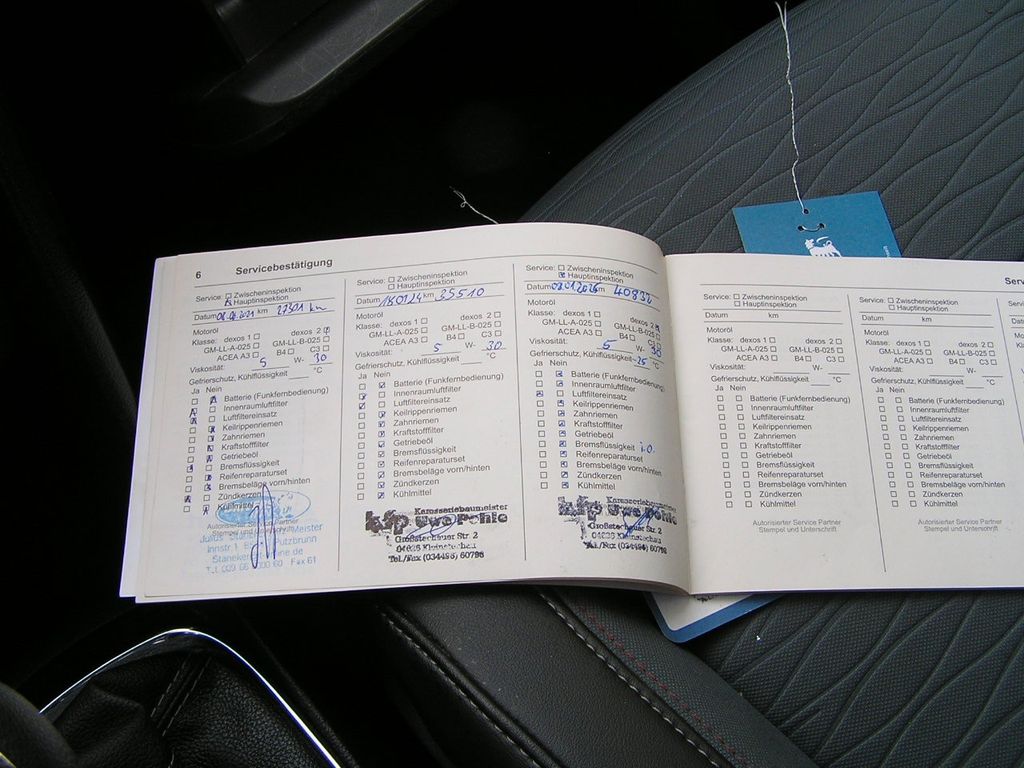 6 Servicebestätigung
Service: Zwischeninspektion
Hauptinspektion
Datum km
Motoröl
Klasse: dexos 1 dexos 2
GM-LL-A-025 GM-LL-B-025
ACEA A3 B4 C3
Viskosität: 5 W- 30
Gefrierschutz, Kühlflüssigkeit °C
Ja Nein
Batterie (Funkfernbedienung)
Innenraumluftfilter
Luftfiltereinsatz
Keilrippenriemen
Zahnriemen
Kraftstofffilter
Getriebeöl
Bremsflüssigkeit
Reifenreparaturset
Bremsbeläge vorn/hinten
Zündkerzen
Kühlmittel
Autorisierter Service Partner
Stempel und Unterschrift
Service: Zwischeninspektion
Hauptinspektion
Datum 180124 km 35510
Motoröl
Klasse: dexos 1 dexos 2
GM-LL-A-025 GM-LL-B-025
ACEA A3 B4 C3
Viskosität: 5 W- 30
Gefrierschutz, Kühlflüssigkeit °C
Ja Nein
Batterie (Funkfernbedienung)
Innenraumluftfilter
Luftfiltereinsatz
Keilrippenriemen
Zahnriemen
Kraftstofffilter
Getriebeöl
Bremsflüssigkeit
Reifenreparaturset
Bremsbeläge vorn/hinten
Zündkerzen
Kühlmittel
Karosseriebaumeister
kfp Uwe Pohle
Großstechauer Str. 2
04626 Kleinstechau
Tel./Fax (034496) 60798
Service: Zwischeninspektion
Hauptinspektion
Datum km
Motoröl
Klasse: dexos 1 dexos 2
GM-LL-A-025 GM-LL-B-025
ACEA A3 B4 C3
Viskosität: 5 W- 30
Gefrierschutz, Kühlflüssigkeit -25 °C
Ja Nein
Batterie (Funkfernbedienung)
Innenraumluftfilter
Luftfiltereinsatz
Keilrippenriemen
Zahnriemen
Kraftstofffilter
Getriebeöl
Bremsflüssigkeit i.O.
Reifenreparaturset
Bremsbeläge vorn/hinten
Zündkerzen
Kühlmittel
Karosseriebaumeister
kfp Uwe Pohle
Großstechauer Str. 2
04626 Kleinstechau
Tel./Fax (034496) 60798
Service: Zwischeninspektion
Hauptinspektion
Datum km
Motoröl
Klasse: dexos 1 dexos 2
GM-LL-A-025 GM-LL-B-025
ACEA A3 B4 C3
Viskosität: W-
Gefrierschutz, Kühlflüssigkeit °C
Ja Nein
Batterie (Funkfernbedienung)
Innenraumluftfilter
Luftfiltereinsatz
Keilrippenriemen
Zahnriemen
Kraftstofffilter
Getriebeöl
Bremsflüssigkeit
Reifenreparaturset
Bremsbeläge vorn/hinten
Zündkerzen
Kühlmittel
Autorisierter Service Partner
Stempel und Unterschrift
Service: Zwischeninspektion
Hauptinspektion
Datum km
Motoröl
Klasse: dexos 1 dexos 2
GM-LL-A-025 GM-LL-B-025
ACEA A3 B4 C3
Viskosität: W-
Gefrierschutz, Kühlflüssigkeit °C
Ja Nein
Batterie (Funkfernbedienung)
Innenraumluftfilter
Luftfiltereinsatz
Keilrippenriemen
Zahnriemen
Kraftstofffilter
Getriebeöl
Bremsflüssigkeit
Reifenreparaturset
Bremsbeläge vorn/hinten
Zündkerzen
Kühlmittel
Autorisierter Service Partner
Stempel und Unterschrift